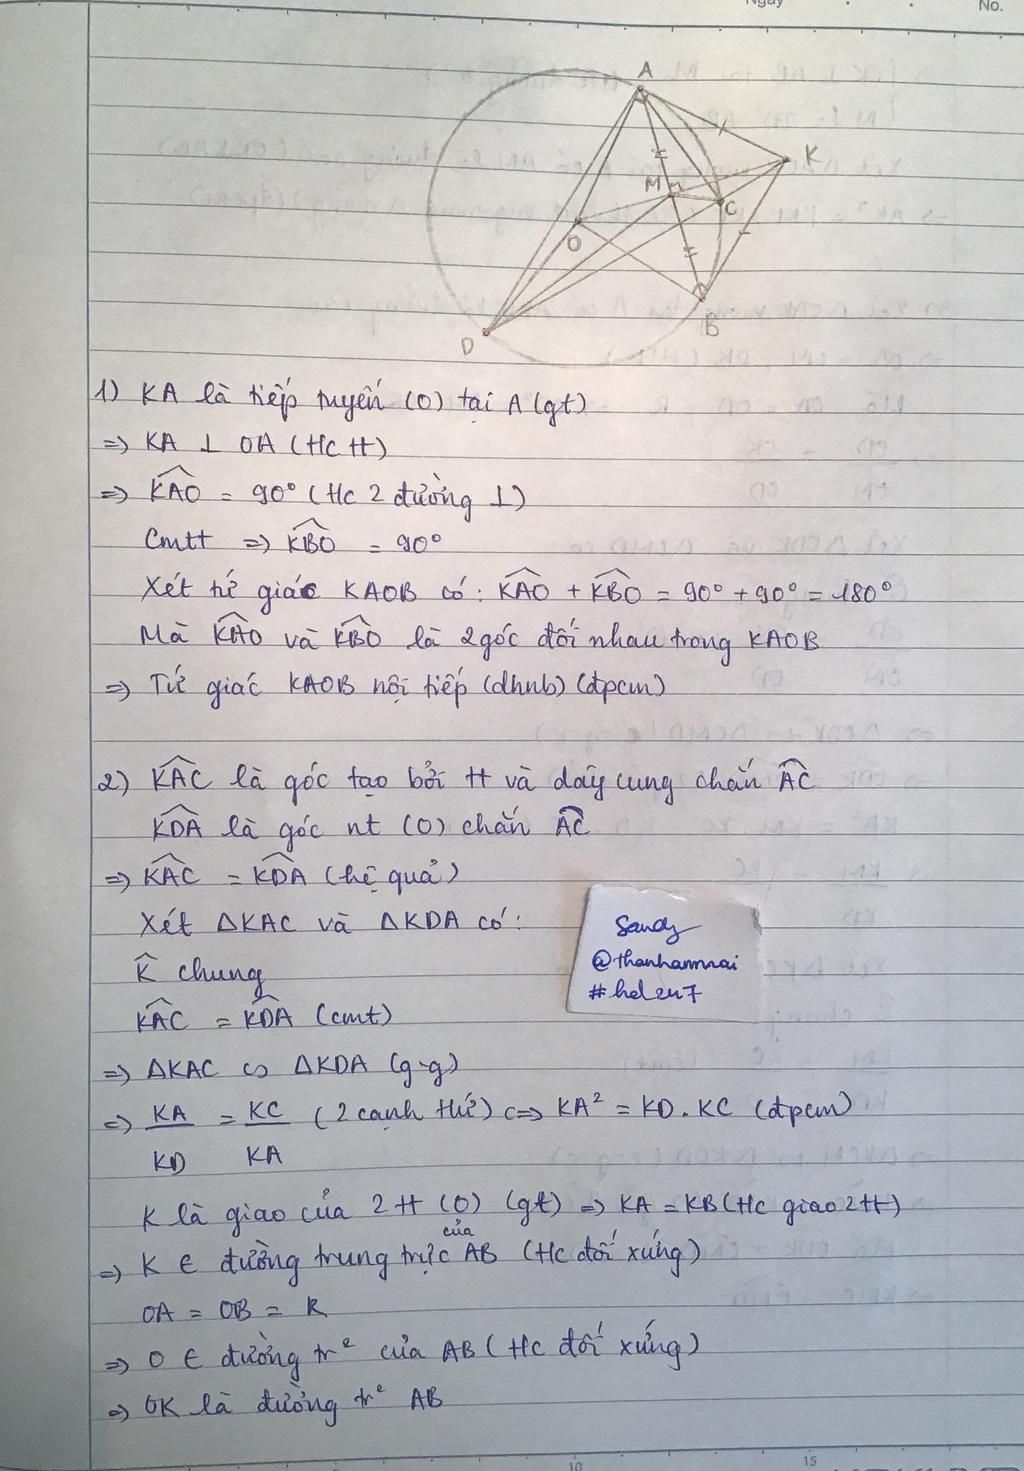 Ngày
No.
A
K
M
C
O
B
D
1) KA là tiếp tuyến (O) tại A (gt)
=> KA ⊥ OA (tc tt)
=> KAO = 90° (tc 2 đường ⊥)
Cmtt => KBO = 90°
Xét tứ giác KAOB có: KAO + KBO = 90° + 90° = 180°
Mà KAO và KBO là 2 góc đối nhau trong KAOB
=> Tứ giác KAOB nội tiếp (dhnb) (đpcm)
2) KAC là góc tạo bởi tt và dây cung chắn AC
KDA là góc nt (O) chắn AC
=> KAC = KDA (hệ quả)
Xét ΔKAC và ΔKDA có:
K chung
KAC = KDA (cmt)
=> ΔKAC ∽ ΔKDA (g-g)
=> KA/KD = KC/KA (2 cạnh tứ) <=> KA² = KD.KC (đpcm)
Sandy
@thanhamnai
#hd247
K là giao của 2 tt (O) (gt) => KA = KB (tc giao 2 tt)
=> K ∈ đường trung trực của AB (tc đối xứng)
OA = OB = R
=> O ∈ đường trᵉ của AB (tc đối xứng)
=> OK là đường trᵉ AB
10
15